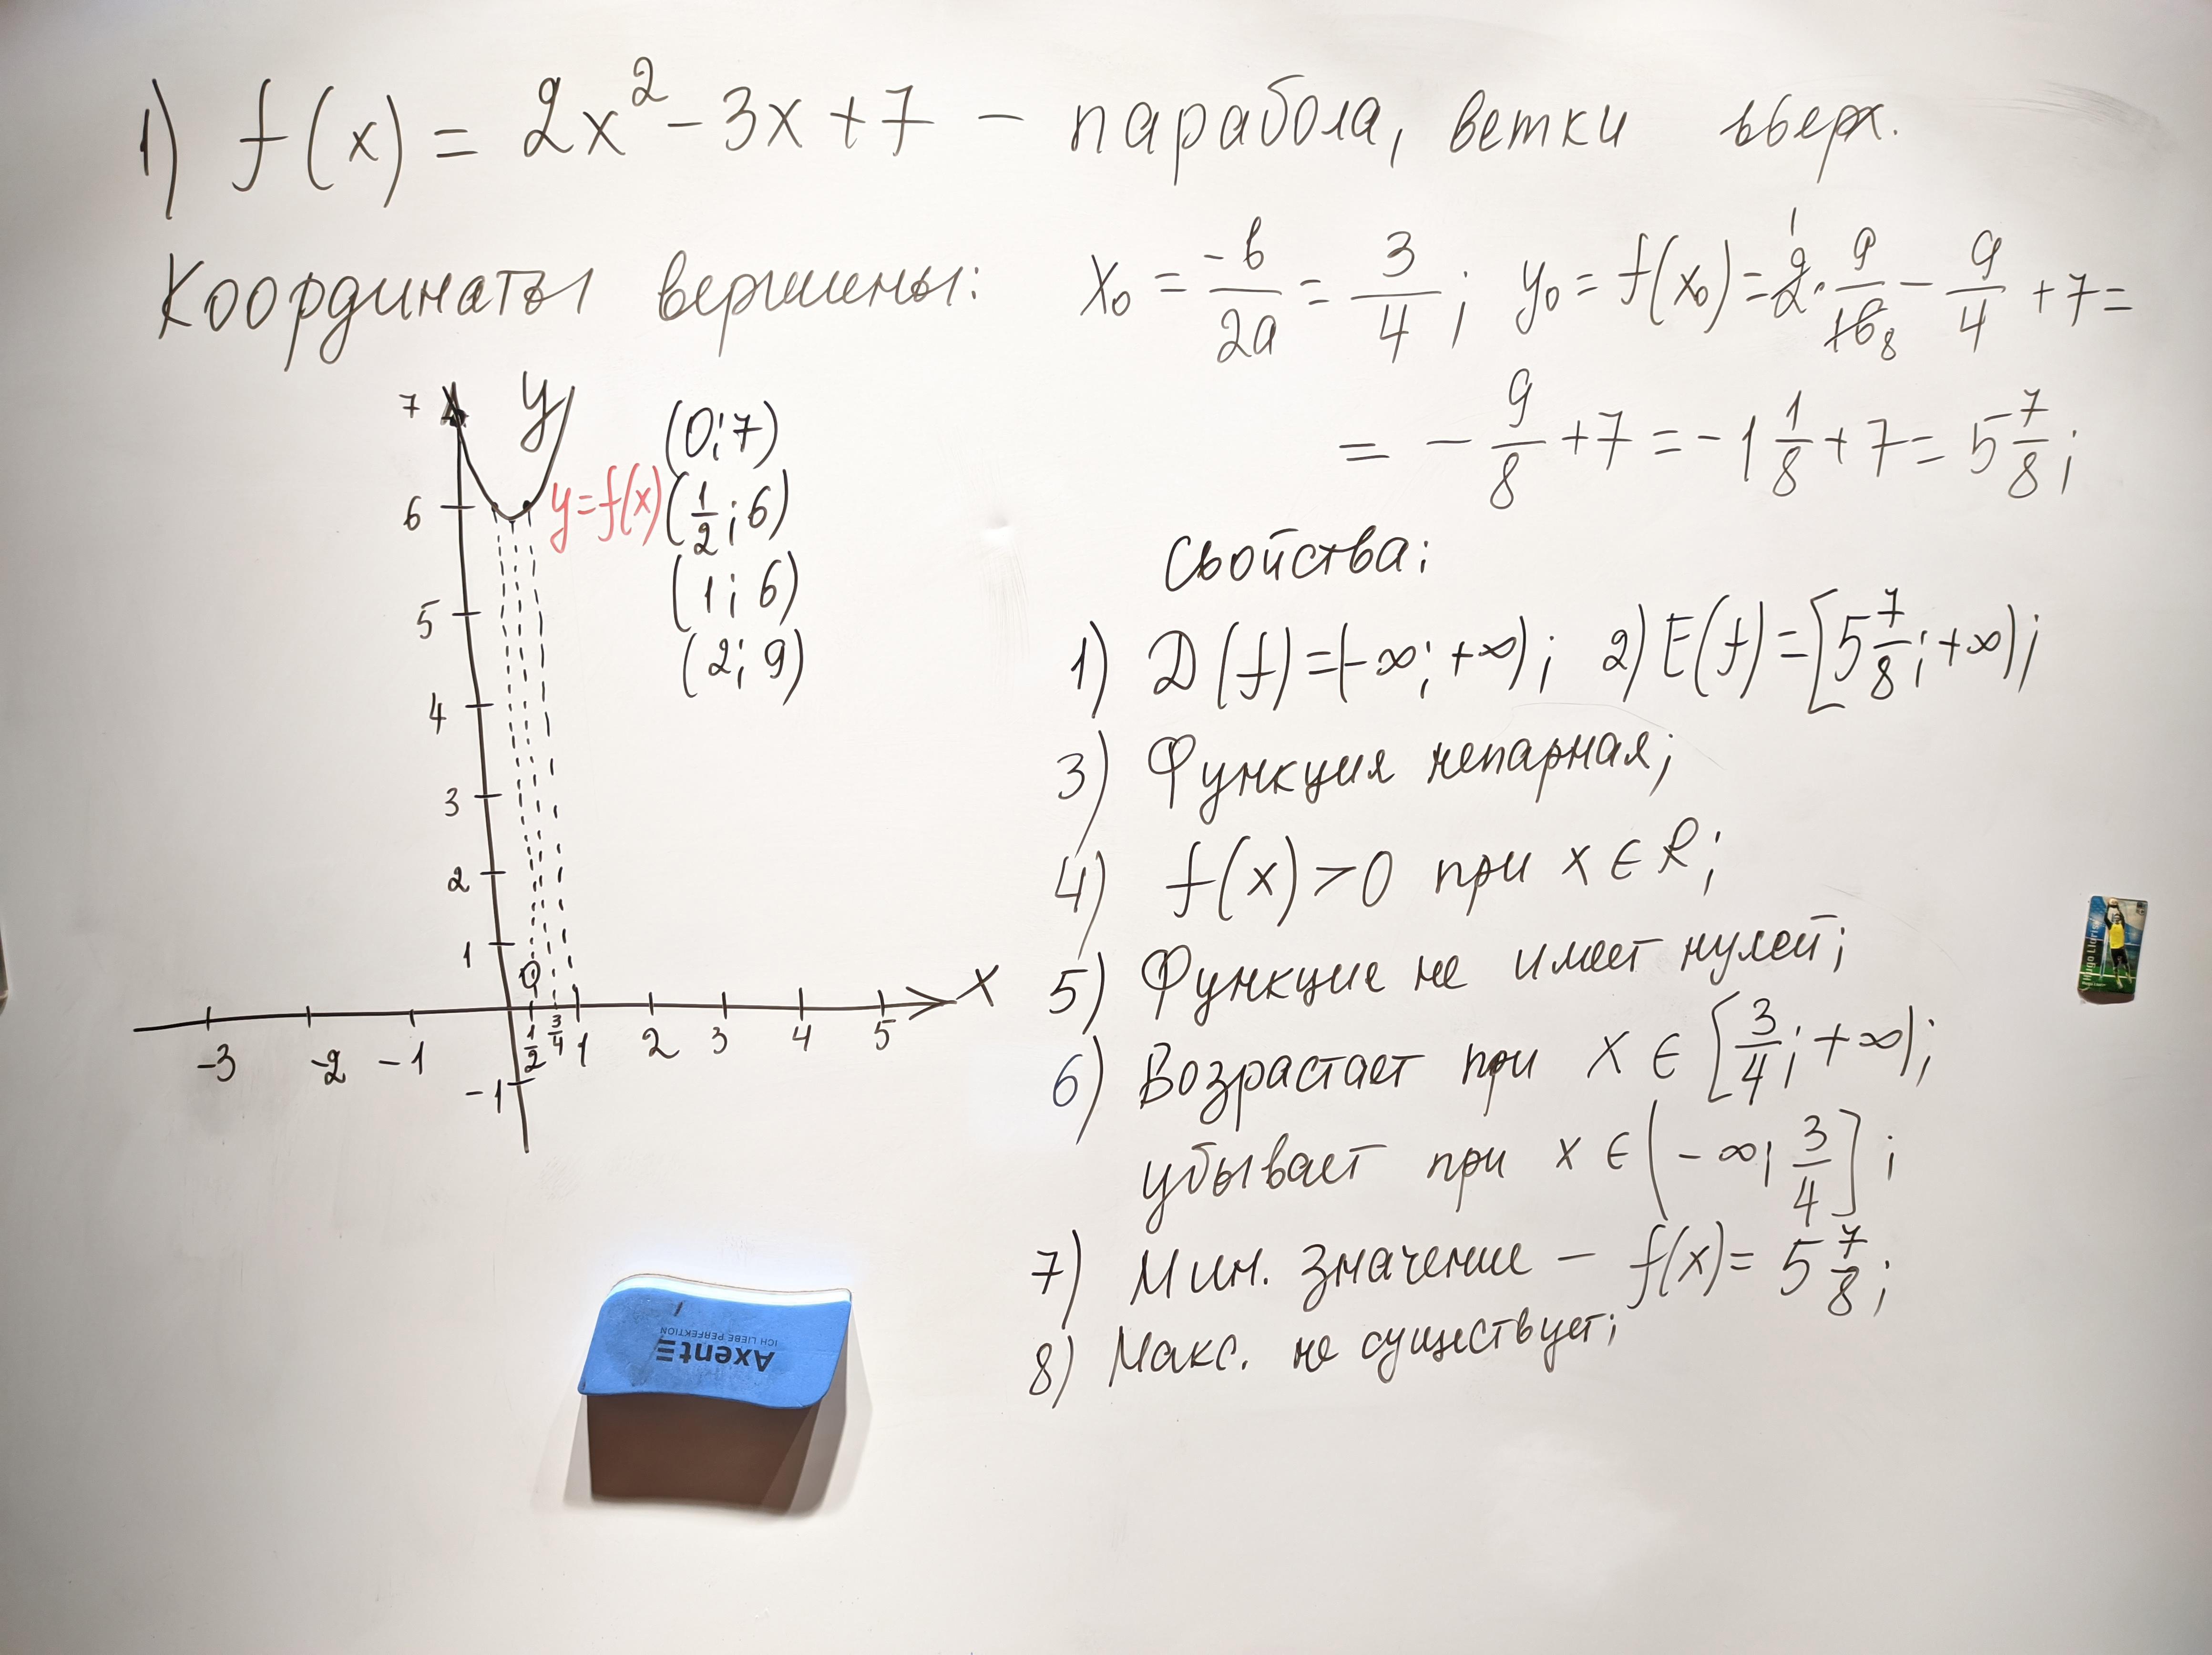 1) f(x) = 2x² - 3x + 7 - парабола, ветки вверх.
Координаты вершины: x₀ = -b/2a = 3/4; y₀ = f(x₀) = 2¹·9/16₈ - 9/4 + 7 =
= -9/8 + 7 = -1 1/8 + 7 = 5 7/8;
y
7
(0; 7)
6
y=f(x)
(1/2; 6)
(1; 6)
(2; 9)
5
4
3
2
1
0
x
-3 -2 -1 1/2 3/4 1 2 3 4 5
-1
Свойства:
1) D(f)=(-∞; +∞); 2) E(f)=[5 7/8; +∞);
3) Функция непарная;
4) f(x) > 0 при x ∈ R;
5) Функция не имеет нулей;
6) Возрастает при x ∈ [3/4; +∞);
убывает при x ∈ (-∞; 3/4];
7) Мин. значение - f(x) = 5 7/8;
8) Макс. не существует;
Axent
ICH LIEBE PERFEKTION
Hugo Lloris